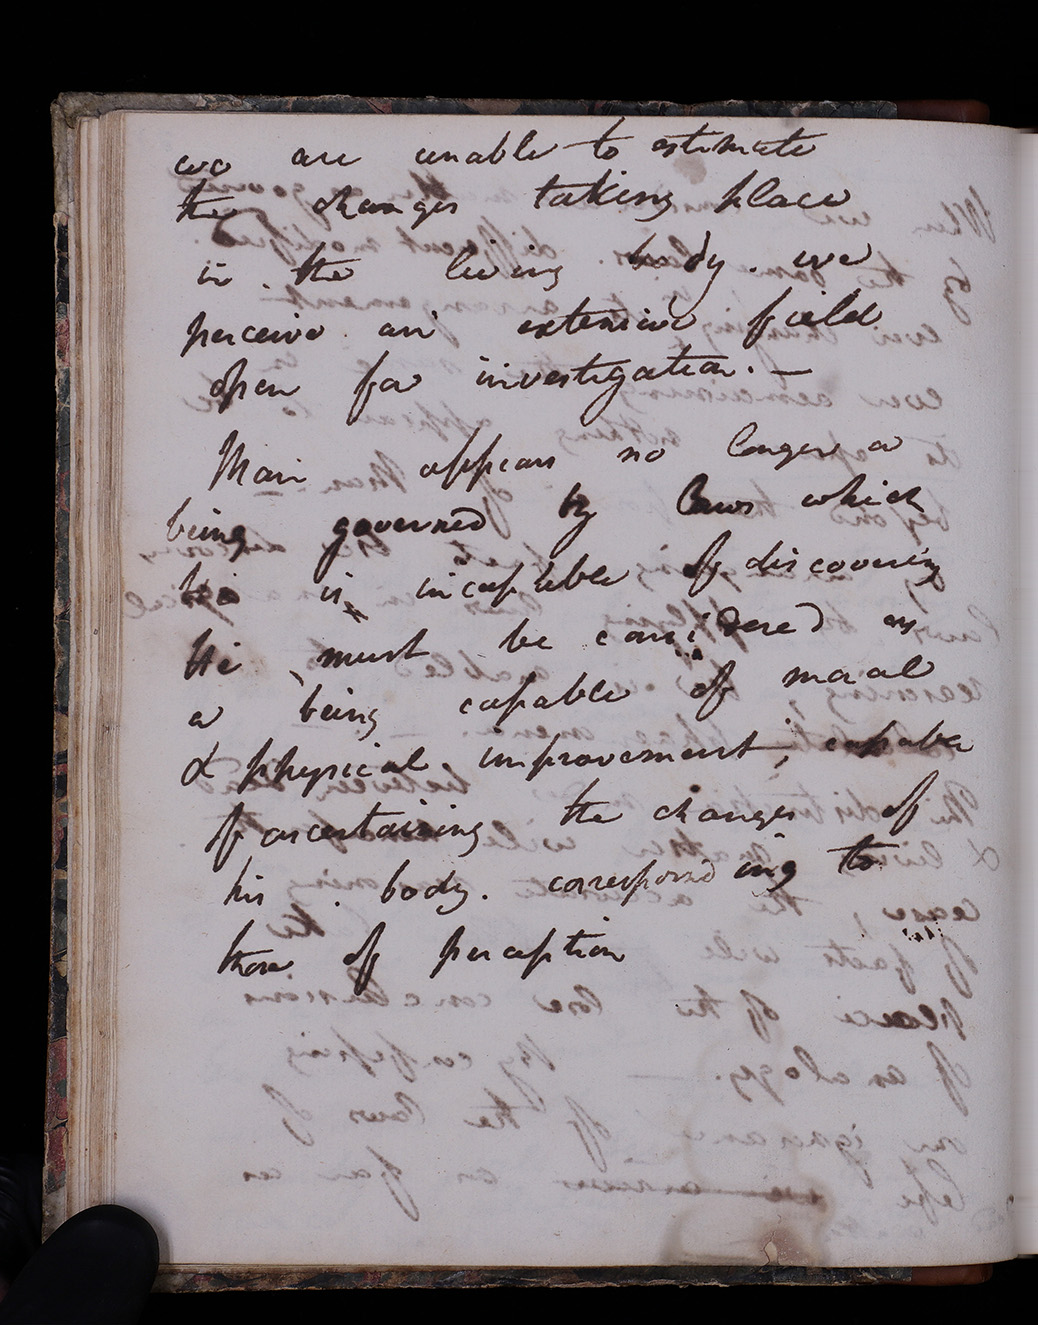 we are unable to estimate
the changes taking place
in the living body. we
perceive an extensive field
open for investigation. —
Man appears no longer a
being governed by laws which
he is incapable of discovering
He must be considered as
a being capable of moral
& physical improvement, capable
of ascertaining the changes of
his body. corresponding to
those of perception